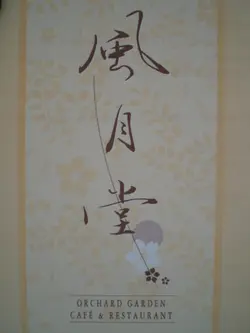 風月堂
ORCHARD GARDEN
CAFÉ & RESTAURANT